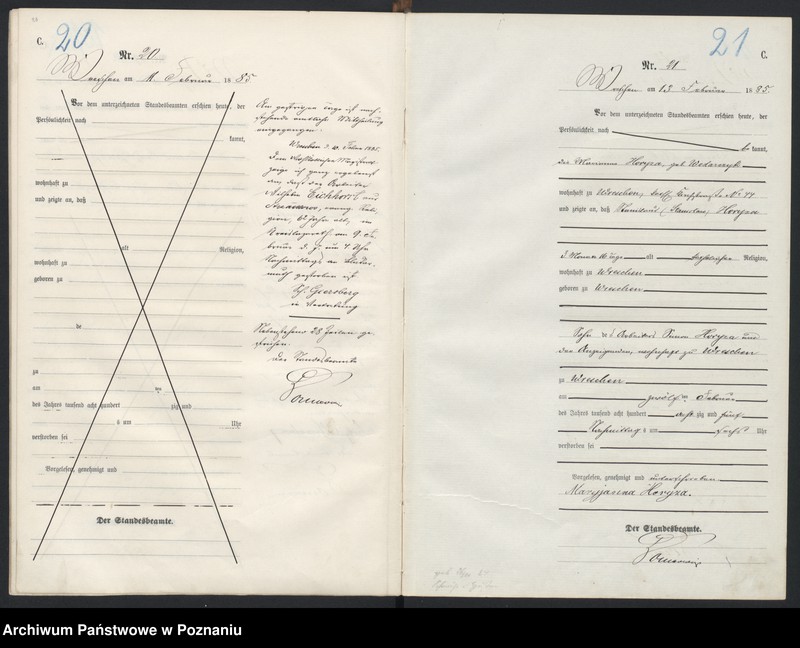 C. 20
Nr. 20
Wreschen am 11 Februar 1885
Vor dem unterzeichneten Standesbeamten erschien heute, der
Persönlichkeit nach
kannt,
wohnhaft zu
und zeigte an, daß
alt Religion,
wohnhaft zu
geboren zu
de
zu
am ten
des Jahres tausend acht hundert zig und
s um Uhr
verstorben sei
Vorgelesen, genehmigt und
Der Standesbeamte.
Am gestrigen Tage ist nach-
stehende amtliche Mittheilung
eingegangen:
Wreschen d. 10. Febr. 1885.
zeige ich ganz ergebenst
an, daß der Arbeiter
Wilhelm Eichhorst aus
evang. Reli-
gion, Jahr alt, im
am 9. Fe-
bruar d. J. um 4 Uhr
Nachmittags an
gestorben ist
in Vertretung
Nebenstehend 28 Zeilen ge-
strichen.
Der Standesbeamte
21 C.
Nr. 21
Wreschen am 13 Februar 1885
Vor dem unterzeichneten Standesbeamten erschien heute, der
Persönlichkeit nach
be kannt,
die Marianna Horyza, geb.
wohnhaft zu Wreschen, No 44
und zeigte an, daß Stanislaus (Stanislaw) Horyza
3 Monate 10 Tage alt katholischer Religion,
wohnhaft zu Wreschen
geboren zu Wreschen
Sohn des Arbeiters Horyza und
der Anzeigenden, wohnhaft zu Wreschen
zu Wreschen
am zwölften Februar
des Jahres tausend acht hundert acht zig und fünf
Nachmittags um sechs Uhr
verstorben sei
Vorgelesen, genehmigt und unterschrieben
Maryjanna Horyza.
Der Standesbeamte.
Archiwum Państwowe w Poznaniu